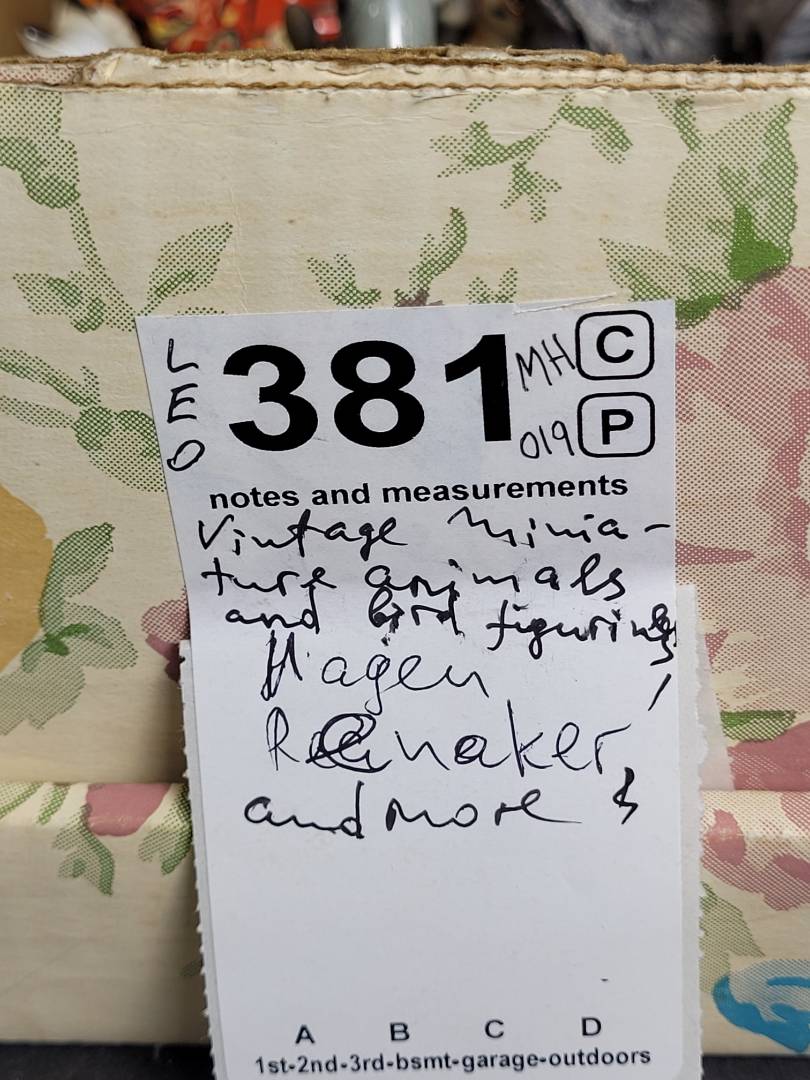 LEO 381 MH C
019 P
notes and measurements
Vintage Minia-
ture animals
and bird figurines,
Hagen
Renaker,
and more
A B C D
1st-2nd-3rd-bsmt-garage-outdoors